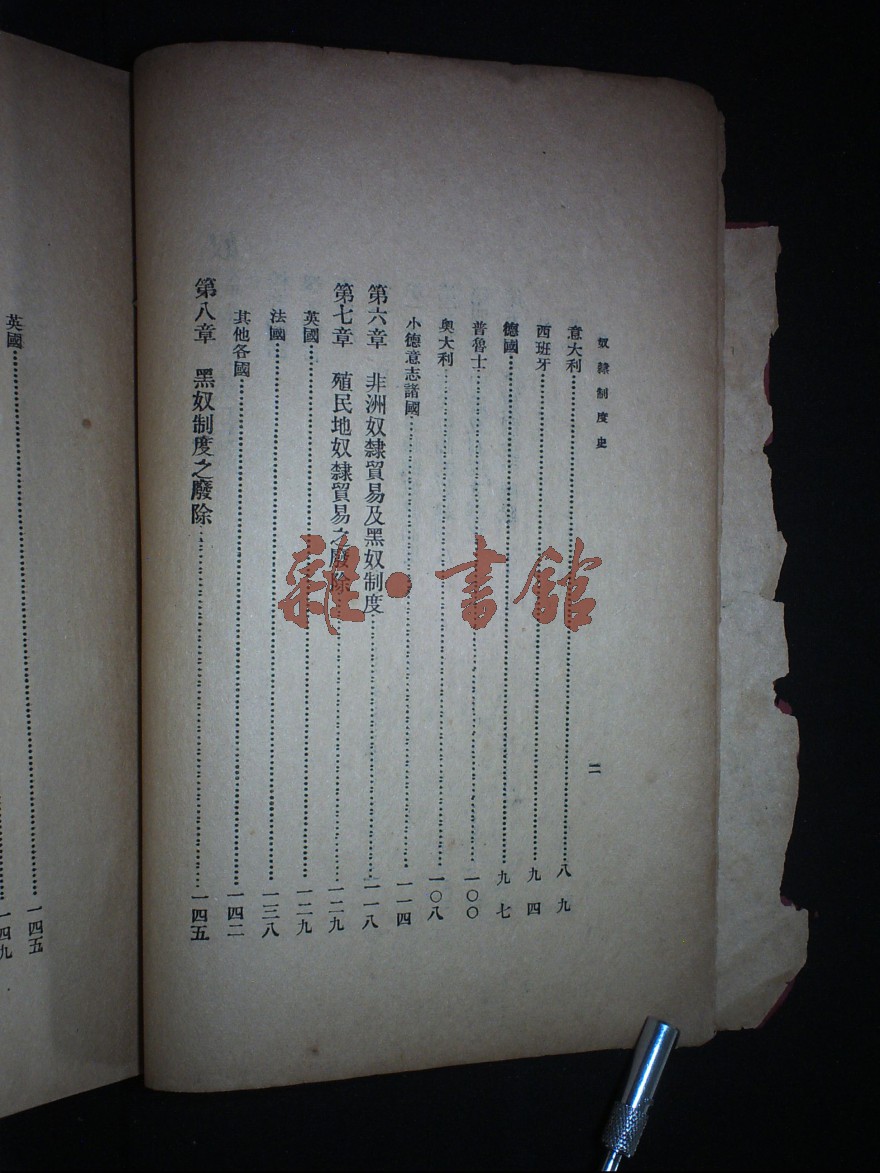 奴隸制度史
二
意大利……八九
西班牙……九四
德國……九七
普魯士……一〇〇
奧大利……一〇八
小德意志諸國……一一四
第六章　非洲奴隸貿易及黑奴制度……一一八
第七章　殖民地奴隸貿易之廢除……一二九
英國……一二九
法國……一三八
其他各國……一四二
第八章　黑奴制度之廢除……一四五
英國……一四五
一四九
雜·書館